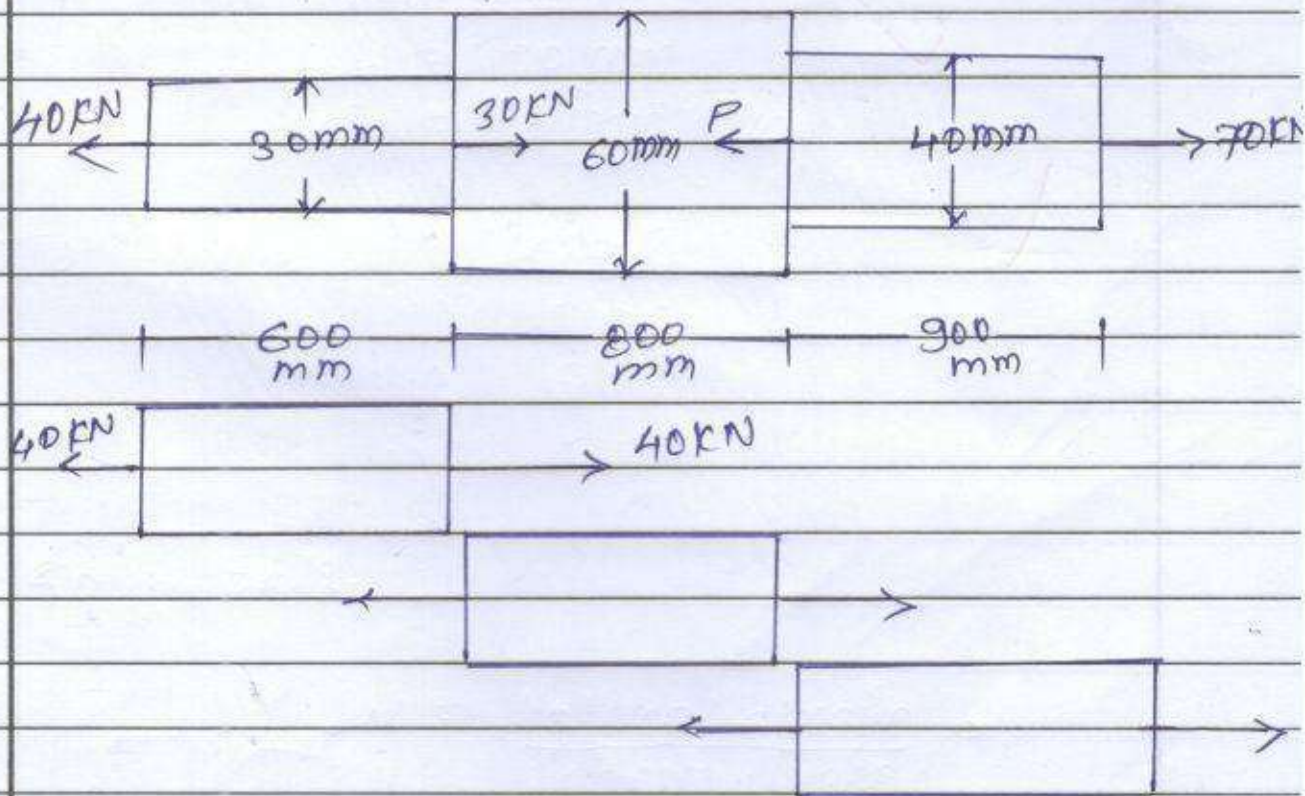 40KN 30mm 30KN 60mm P 40mm 70KN
600 mm 800 mm 900 mm
40KN 40KN